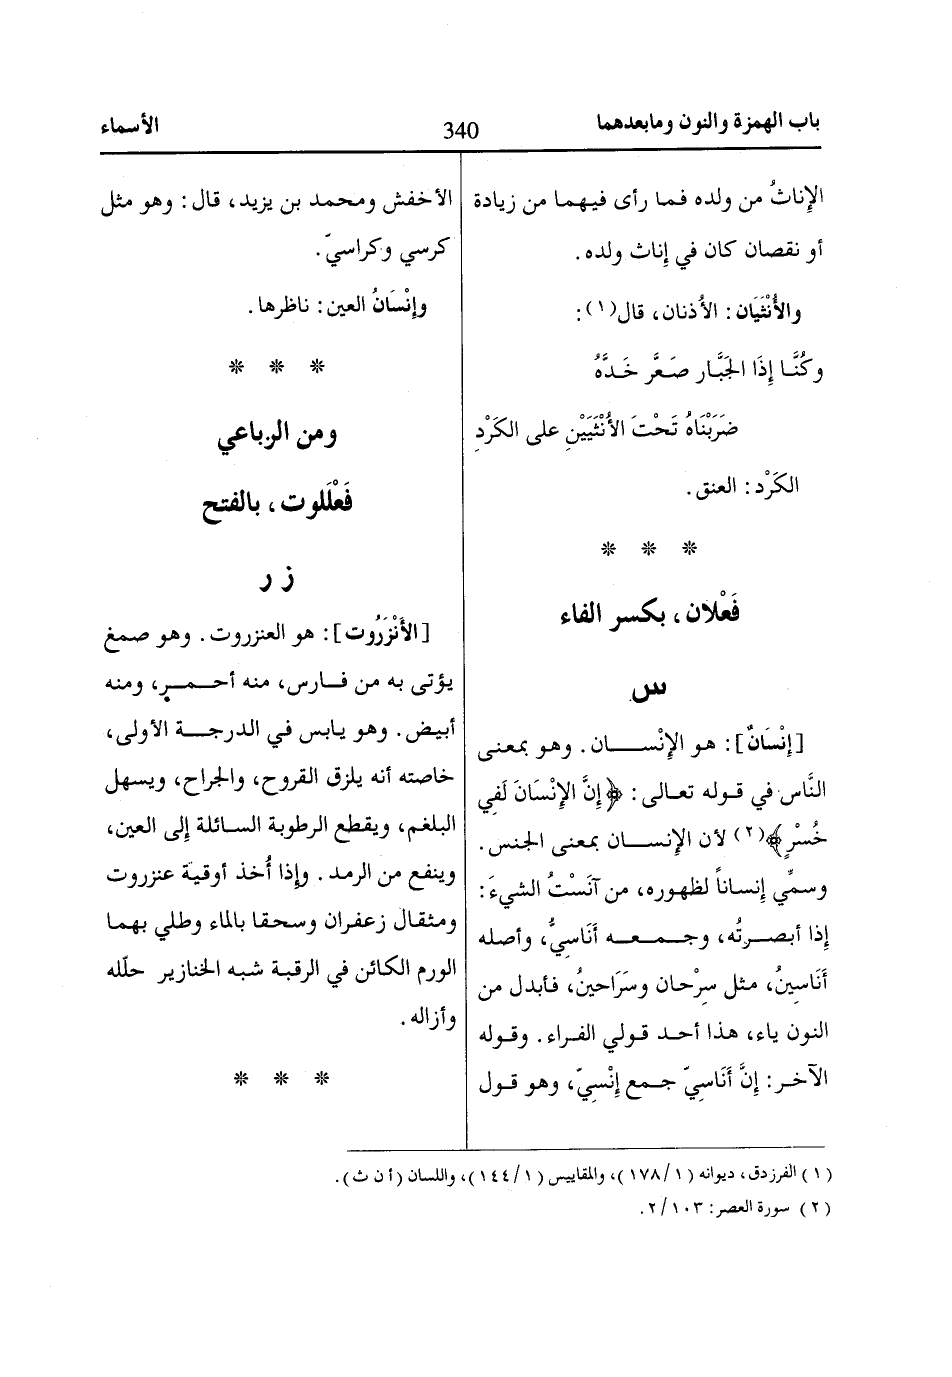 باب الهمزة والنون ومابعدهما
340
الأسماء
الإناثُ من ولده فـما رأى فيـهمـا من زيادة
أو نقصان كان في إناث ولده.
والأُنْثَيَان: الأذنان، قال(١):
وكُنَّـا إِذَا الجَبَّـار صَعَّر خَـدَّهُ
ضَرَبْنَاهُ تَحْتَ الأُنْثَيَيْنِ على الكَرْدِ
الكَرْد: العنق.
* * *
فَعْلان، بكسر الفاء
س
[إِنْسَانٌ]: هو الإِنْسـان. وهـو بمعنى
النَّاس في قـوله تعـالى: ﴿إِنَّ الإِنْسَانَ لَفِي
خُسْرٍ﴾(٢) لأن الإنسـان بمعنى الجنس.
وسمِّي إنساناً لظهوره، من آنَسْتُ الشيءَ:
إذا أبصـرتُه، وجـمعـه أنَاسيُّ، وأصله
أَنَاسِينُ، مثل سِرْحان وسَرَاحينُ، فأبدل من
النون ياء، هذا أحد قـولي الفـراء. وقـوله
الآخـر: إنَّ أَنَاسِيّ جـمع إنْسِيّ، وهـو قـول
الأخفش ومحمد بن يزيد، قال: وهـو مثل
كرسي وكراسيّ.
وإِنْسَانُ العين: ناظرها.
* * *
ومن الرباعي
فَعْلَلوت، بالفتح
ز ر
[الأَنْزَرُوت]: هو العنزروت. وهـو صمغ
يؤتى به من فـارس، منه أحـمـر، ومنه
أبيض. وهو يابس في الدرجـة الأولى،
خاصته أنه يلزق القروح، والجراح، ويسهل
البلغم، ويقطع الرطوبة السـائلة إلى العين،
وينفع من الرمد. وإذا أُخذ أوقية عنزروت
ومثقال زعفران وسحقا بالماء وطلي بهما
الورم الكائن في الرقبة شبه الخنازير حلّله
وأزاله.
* * *
(١) الفرزدق، ديوانه (١/١٧٨)، والمقاييس (١/١٤٤)، واللسان (أ ن ث).
(٢) سورة العصر: ١٠٣/٢.